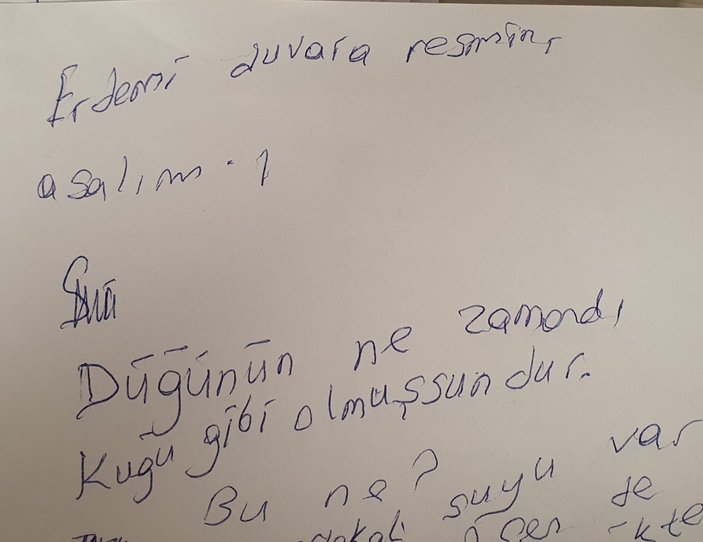 Erdemi duvara resmini
asalım. 1
Düğünün ne zamandı
Kuğu gibi olmuşsundur.
Bu ne?
suyu var
de